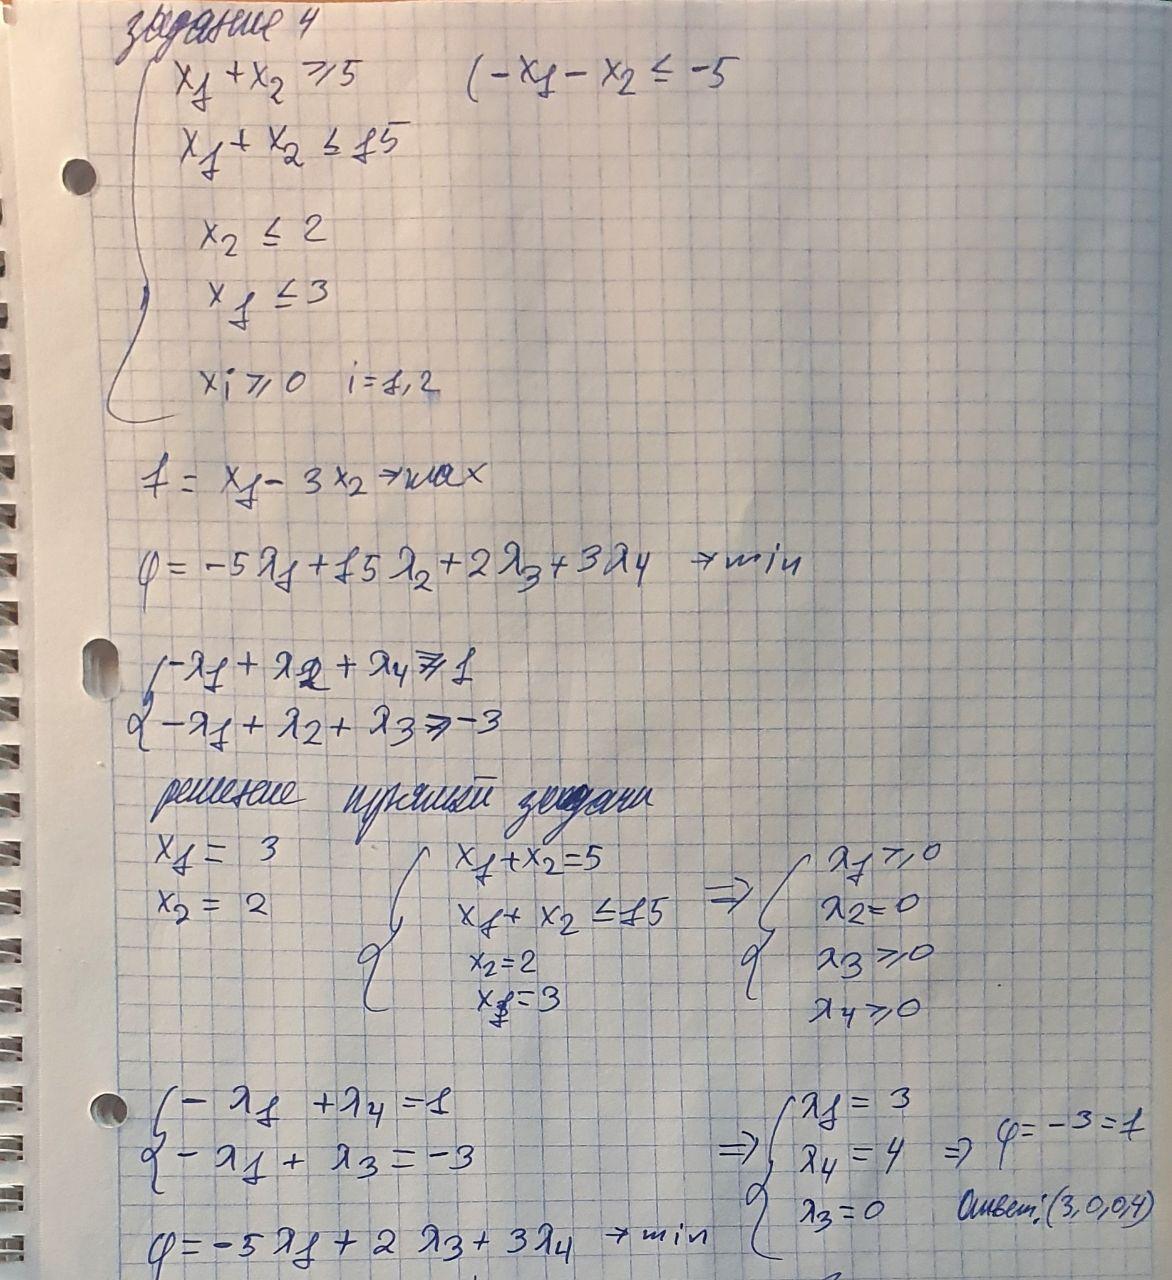 задание 4
x₁ + x₂ ⩾ 5 (-x₁ - x₂ ≤ -5
x₁ + x₂ ≤ 15
x₂ ≤ 2
x₁ ≤ 3
xᵢ ⩾ 0 i=1,2
f = x₁ - 3x₂ → max
φ = -5λ₁ + 15λ₂ + 2λ₃ + 3λ₄ → min
-λ₁ + λ₂ + λ₄ ⩾ 1
-λ₁ + λ₂ + λ₃ ⩾ -3
решение прямой задачи
x₁ = 3 x₁ + x₂ = 5 λ₁ ⩾ 0
x₂ = 2 x₁ + x₂ ≤ 15 ⇒ λ₂ = 0
x₂ = 2 λ₃ ⩾ 0
x₁ = 3 λ₄ ⩾ 0
-λ₁ + λ₄ = 1 λ₁ = 3
-λ₁ + λ₃ = -3 ⇒ λ₄ = 4 ⇒ φ = -3 = f
λ₃ = 0 Ответ: (3,0,0,4)
φ = -5λ₁ + 2λ₃ + 3λ₄ → min